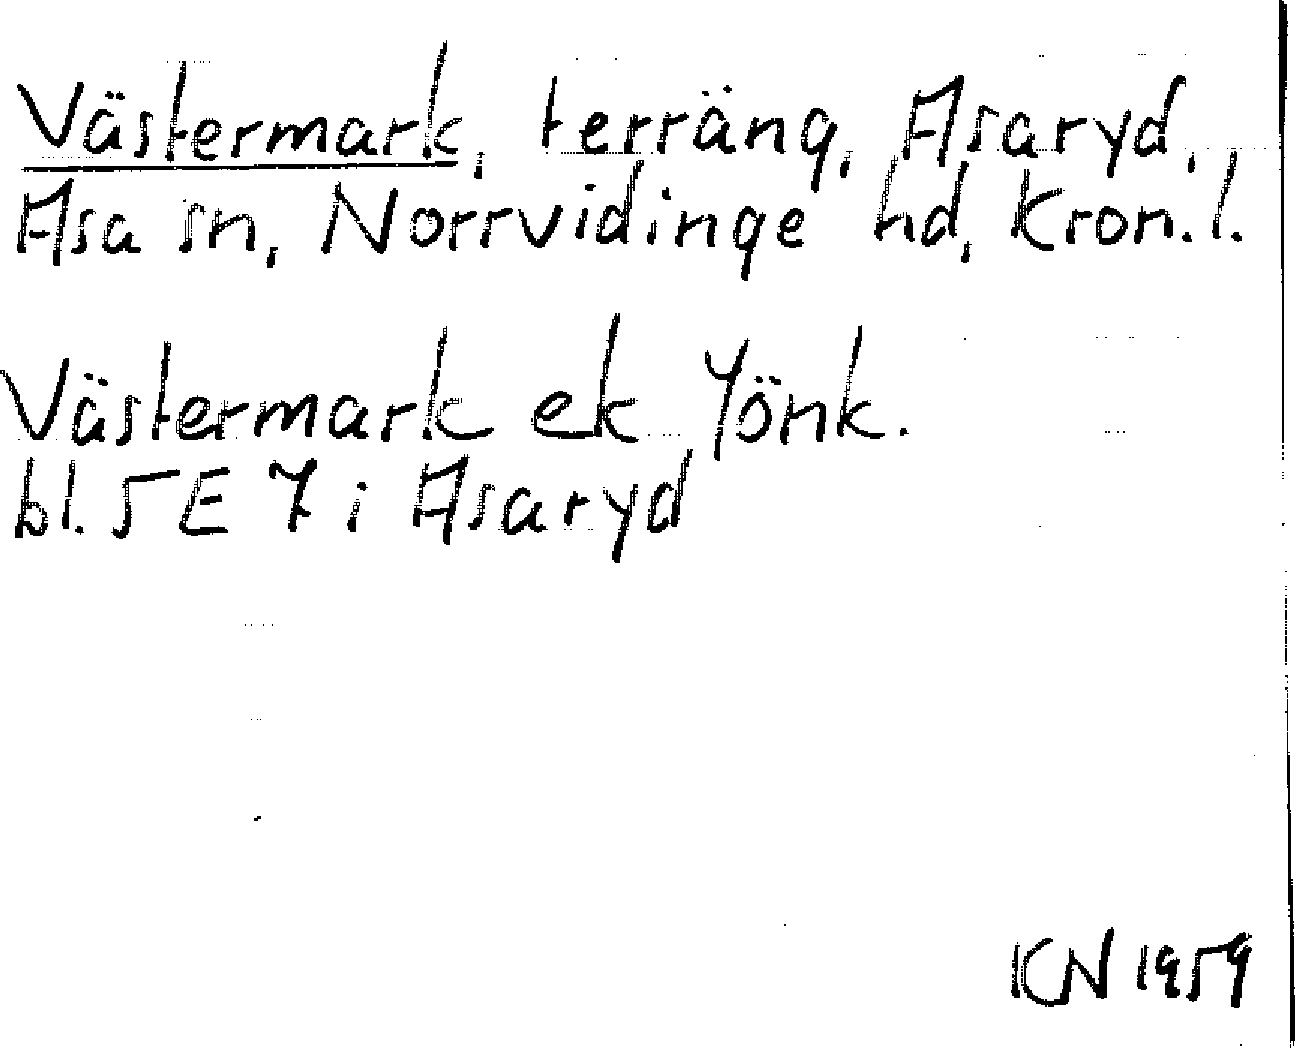 Västermark, terräng, Asaryd,
Asa sn, Norrvidinge hd, Kron. l.
Västermark ek Jönk.
bl. 5E 7 i Asaryd
KN 1959